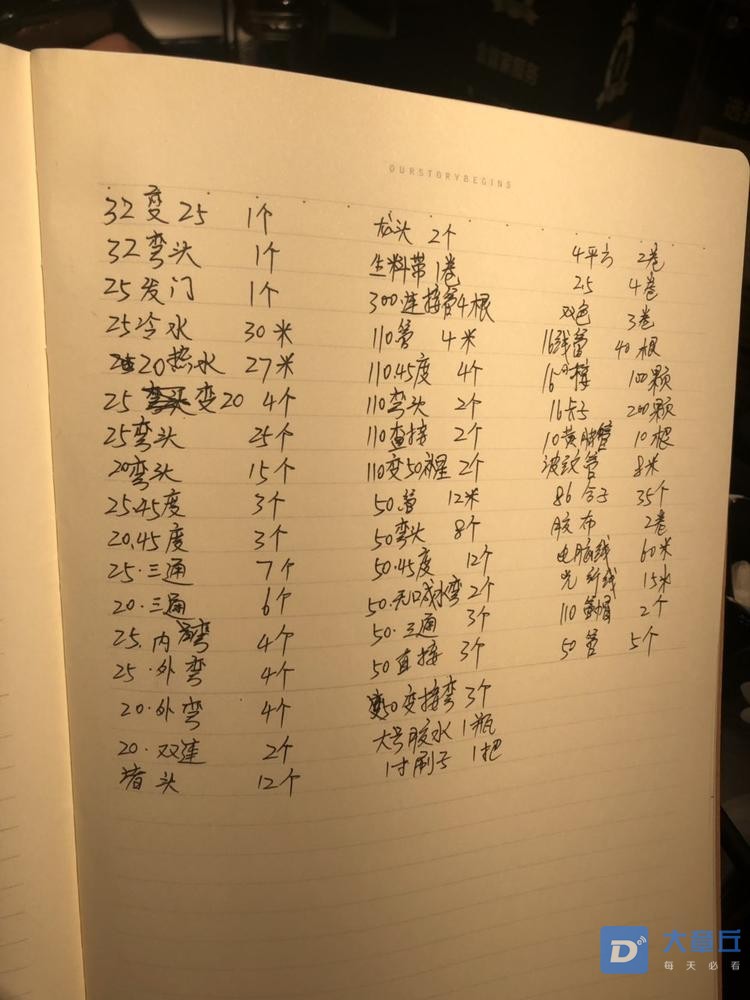 OURSTORYBEGINS
32变25 1个
32弯头 1个
25发门 1个
25冷水 30米
20热水 27米
25变20 4个
25弯头 25个
20弯头 15个
25.45度 3个
20.45度 3个
25.三通 7个
20.三通 6个
25.内弯 4个
25.外弯 4个
20.外弯 4个
20.双连 2个
堵头 12个
龙头 2个
生料带 1卷
300.连接管4根
110管 4米
110.45度 4个
110弯头 2个
110直接 2个
110变50 2个
50.管 12米
50弯头 8个
50.45度 12个
50.无口水弯 2个
50.三通 3个
50直接 3个
50变接弯 3个
大号胶水 1瓶
1寸刷子 1把
4平方 2卷
2.5 4卷
双色 3卷
16线管 40根
16直接 100颗
16卡子 200颗
10黄腊管 10根
波纹管 8米
86合子 35个
胶布 2卷
电脑线 60米
光纤线 15米
110管帽 2个
50管 5个
大章丘
每天必看